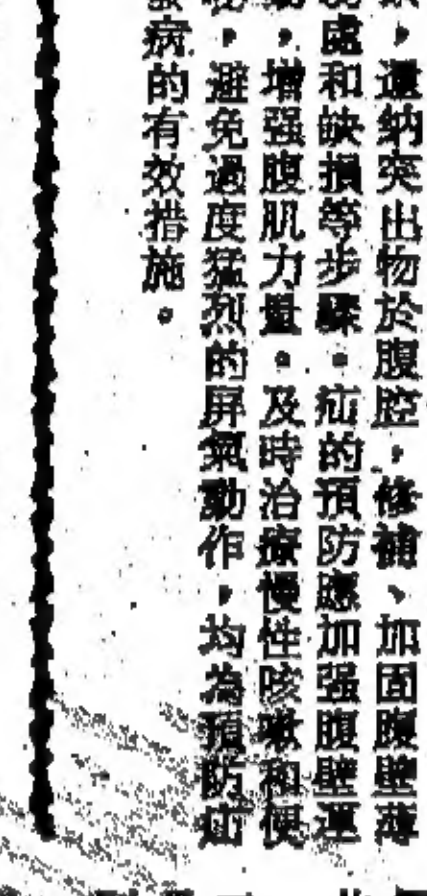 ，還納突出物於腹腔，修補、加固腹壁薄
處和缺損等步驟。疝的預防應加强腹壁運
，增强腹肌力量。及時治療慢性咳嗽和便
，避免過度猛烈的屏氣動作，均為預防疝
病的有效措施。